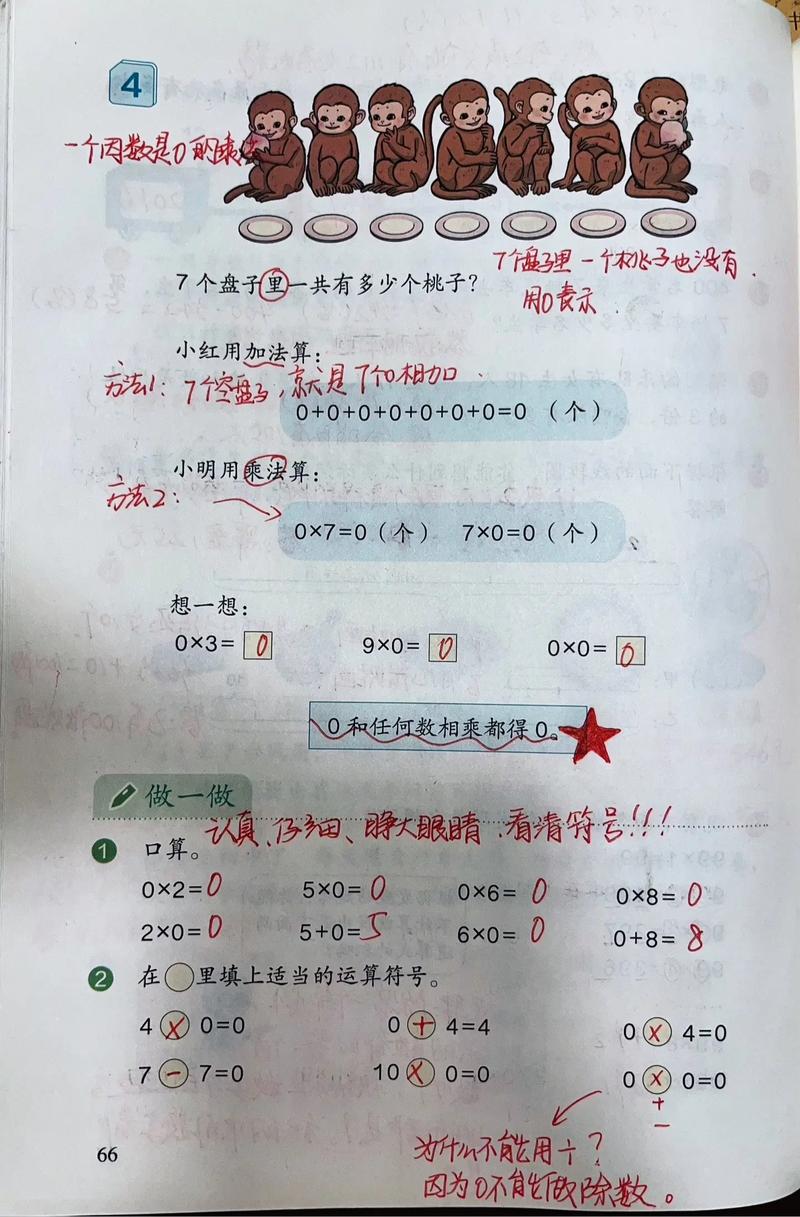 4
一个因数是0的乘法
7个盘子里一个桃子也没有.
用0表示.
7个盘子里一共有多少个桃子?
小红用加法算:
方法1: 7个空盘子,就是7个0相加
0+0+0+0+0+0+0=0 (个)
小明用乘法算:
方法2:
0×7=0(个) 7×0=0(个)
想一想:
0×3= 0 9×0= 0 0×0= 0
0和任何数相乘都得0。
做一做
认真、仔细、睁大眼睛、看清符号!!!
1 口算。
0×2=0 5×0=0 0×6=0 0×8=0
2×0=0 5+0=5 6×0=0 0+8=8
2 在○里填上适当的运算符号。
4×0=0 0+4=4 0×4=0
7-7=0 10×0=0 0×0=0
+
-
为什么不能用÷?
因为0不能做除数。
66